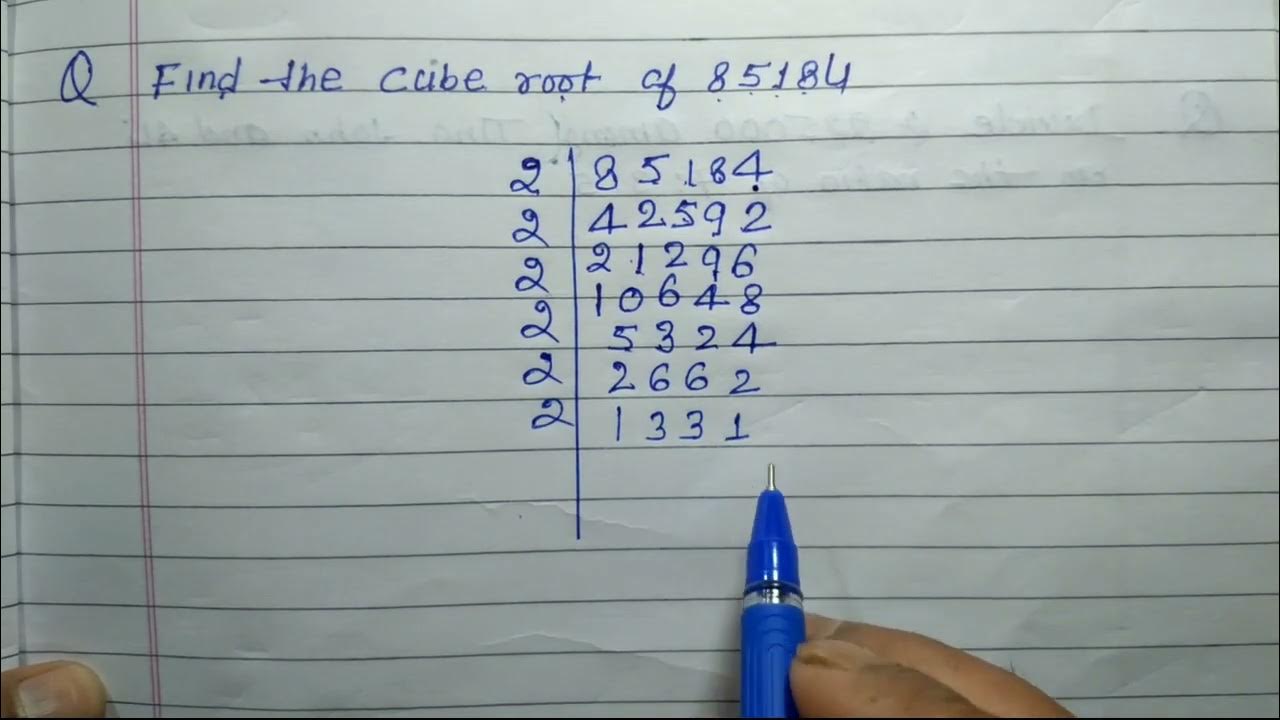 Q Find the cube root of 85184
2 | 85184
2 | 42592
2 | 21296
2 | 10648
2 | 5324
2 | 2662
2 | 1331